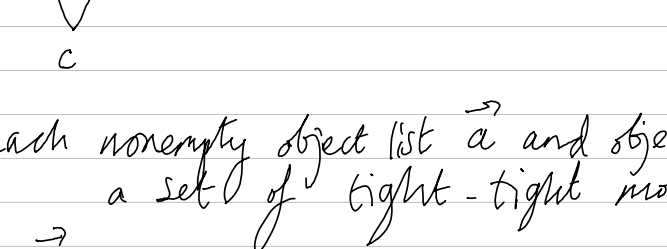 C
ach nonempty object list \vec{a} and obje
a set of tight-tight mo